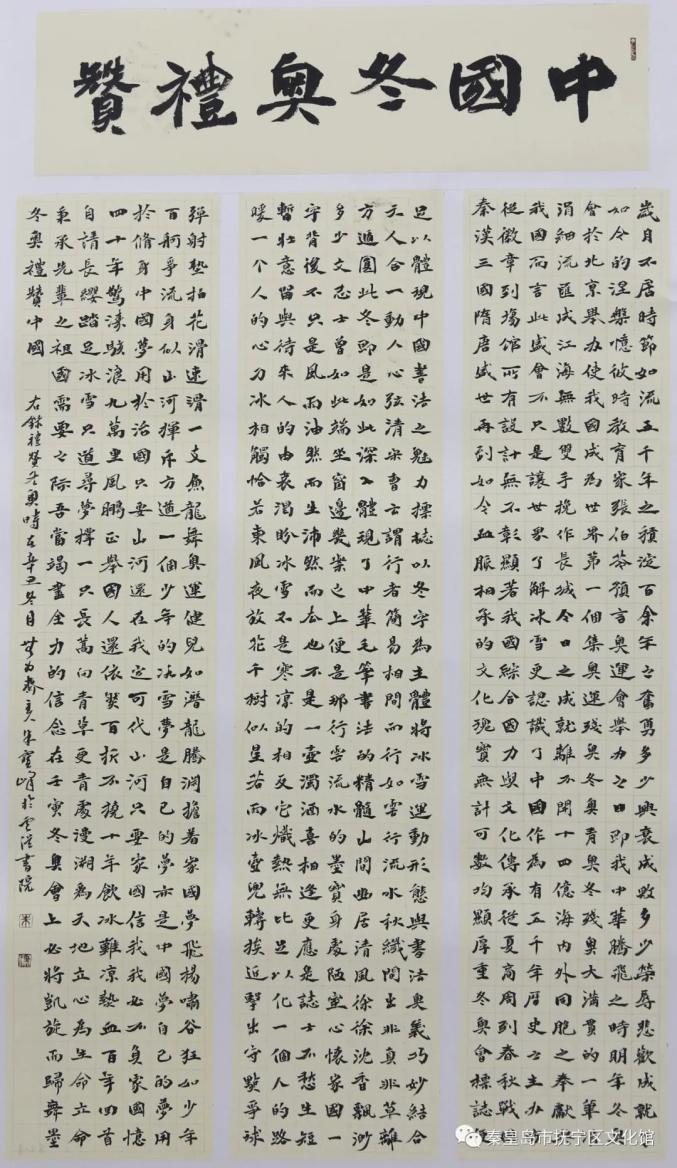 中國冬奧禮贊
歲月不居時節如流五千年之積淀百余年之奮勇多少興衰成敗多少榮辱悲歡成就
如今的涅槃憶彼時教育家張伯苓預言奧運會舉办之日即我中華騰飛之時明年冬奧
會於北京舉办使我國成為世界第一個集奧運殘奧冬奧青奧冬殘奧大滿貫的一筆
涓細流匯成江海無數雙手挽作長城今日之成就離不開十四億海內外同胞之奉獻
我國而言此盛會不只是讓世界了解冰雪更認識了中國作為有五千年歷史之主办
從徽章到場館所有設計無不彰顯著我國綜合國力與文化傳承從夏商周到春秋戰
秦漢三國隋唐盛世再到如今血脈相承的文化瑰寶無計可數均顯厚重冬奧會標誌
足以體現中國書法之魅力標誌以冬字為主體將冰雪運動形態與書法奧義巧妙結合
天人合一動人心弦清宋曹云謂行者簡易相間而行如雲行流水秾纖間出非真非草離
方遁圓此冬即是如此深入體現了中華毛筆書法的精髓山間幽居清風徐徐沈香飄渺
多少文忍士曾如此端坐窗邊幾案之上便是那行雲流水的墨寶身處陋室心懷家國一
字背後不只是風雨油然而生沛然而也不是一壺濁酒喜相逢更應是誌士不愁生短
暫壯意留與待來人的由衷渴盼冰雪不是寒凉的相反它熾熱無比足以化一個人的路
暖一个人的心刀冰相觸恰若東風夜放花千樹似星若雨冰壺兒轉挨近擊出守壘爭球
彈射墊拍花滑速滑一支魚龍舞奧運健兒如潛龍騰淵擔着家國夢飛揚嘯谷狂如少年
百舸爭流身似山河揮斥方遒一個少年的冰雪夢是自己的夢亦是中國夢自己的夢用
於修身中國夢用於治國只要山河還在我定可代山河只要家國信我我必不負家國憶
四十年驚濤駭浪九萬里風鵬正舉國人還依然百折不撓十年飲冰難凉熱血百年回首
自請長纓踏足冰雪只道尋夢撐一只長蒿向青草更青處漫溯為天地立心為生命立命
秉承先輩之祖國需要之際吾當竭盡全力的信念在壬寅冬奧會上必將凱旋而歸舞墨
冬奧禮贊中國
右錄禮贊冬奧時在辛丑冬月 朱寶於雲溪書院
秦皇岛市抚宁区文化馆